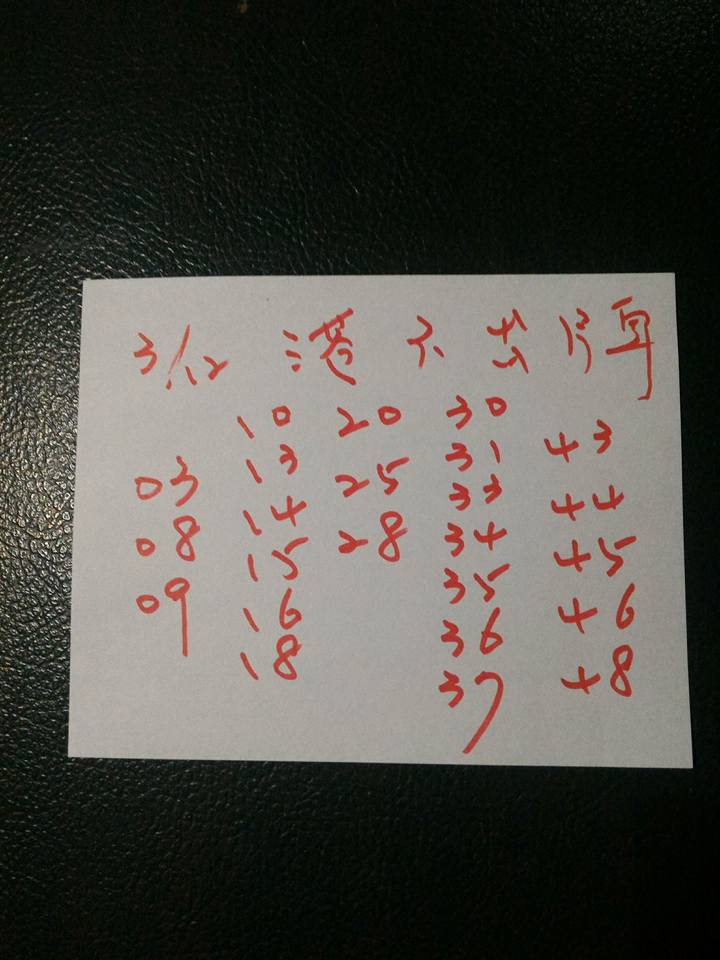 3/12 港不出牌
10 20 30
13 31 43
03 14 25 33 44
08 15 28 34 45
09 16 35 46
18 36 48
37